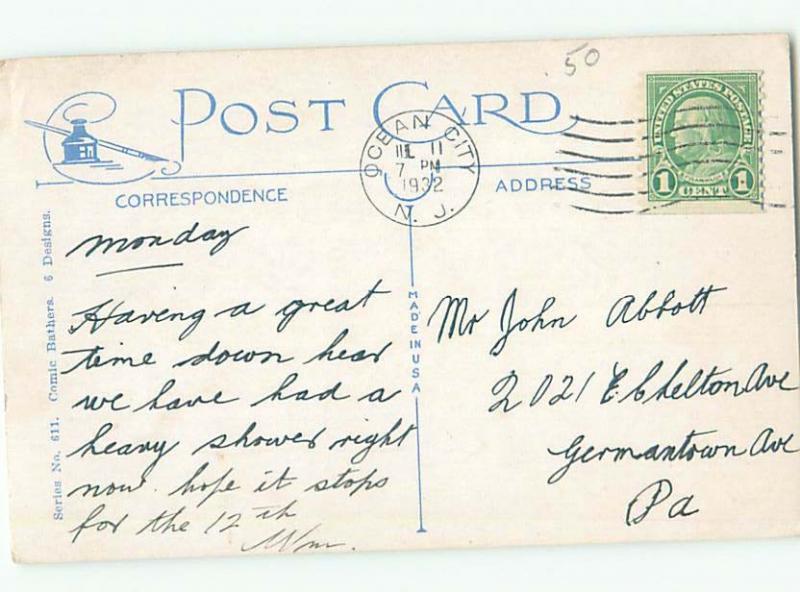 50
POST CARD
UNITED STATES POSTAGE
1 CENT 1
OCEAN CITY
JUL 11
7 PM
1932
N. J.
CORRESPONDENCE
ADDRESS
Series No. 611. Comic Bathers. 6 Designs.
MADE IN USA
Monday
Having a great
time down hear
we have had a
heavy shower right
now. hope it stops
for the 12th
Wm.
Mr John Abbott
2021 E. Chelton Ave
Germantown Ave
Pa